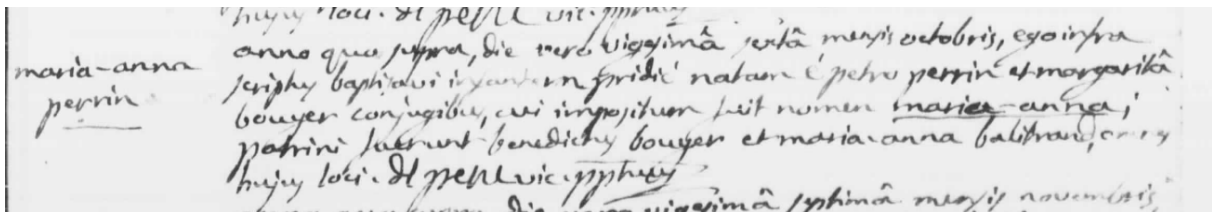 hujus loci.
maria-anna
perrin
anno quo supra, die vero vigesimâ sextâ mensis octobris, ego infra
scriptus baptisavi infantem pridié natam é petro perrin et margaritâ
bouyer conjugibus, cui impositum fuit nomen maria-anna;
patrini fuerunt benedictus bouyer et maria-anna balitrand,
hujus loci.
die vero vigesimâ septimâ mensis novembris